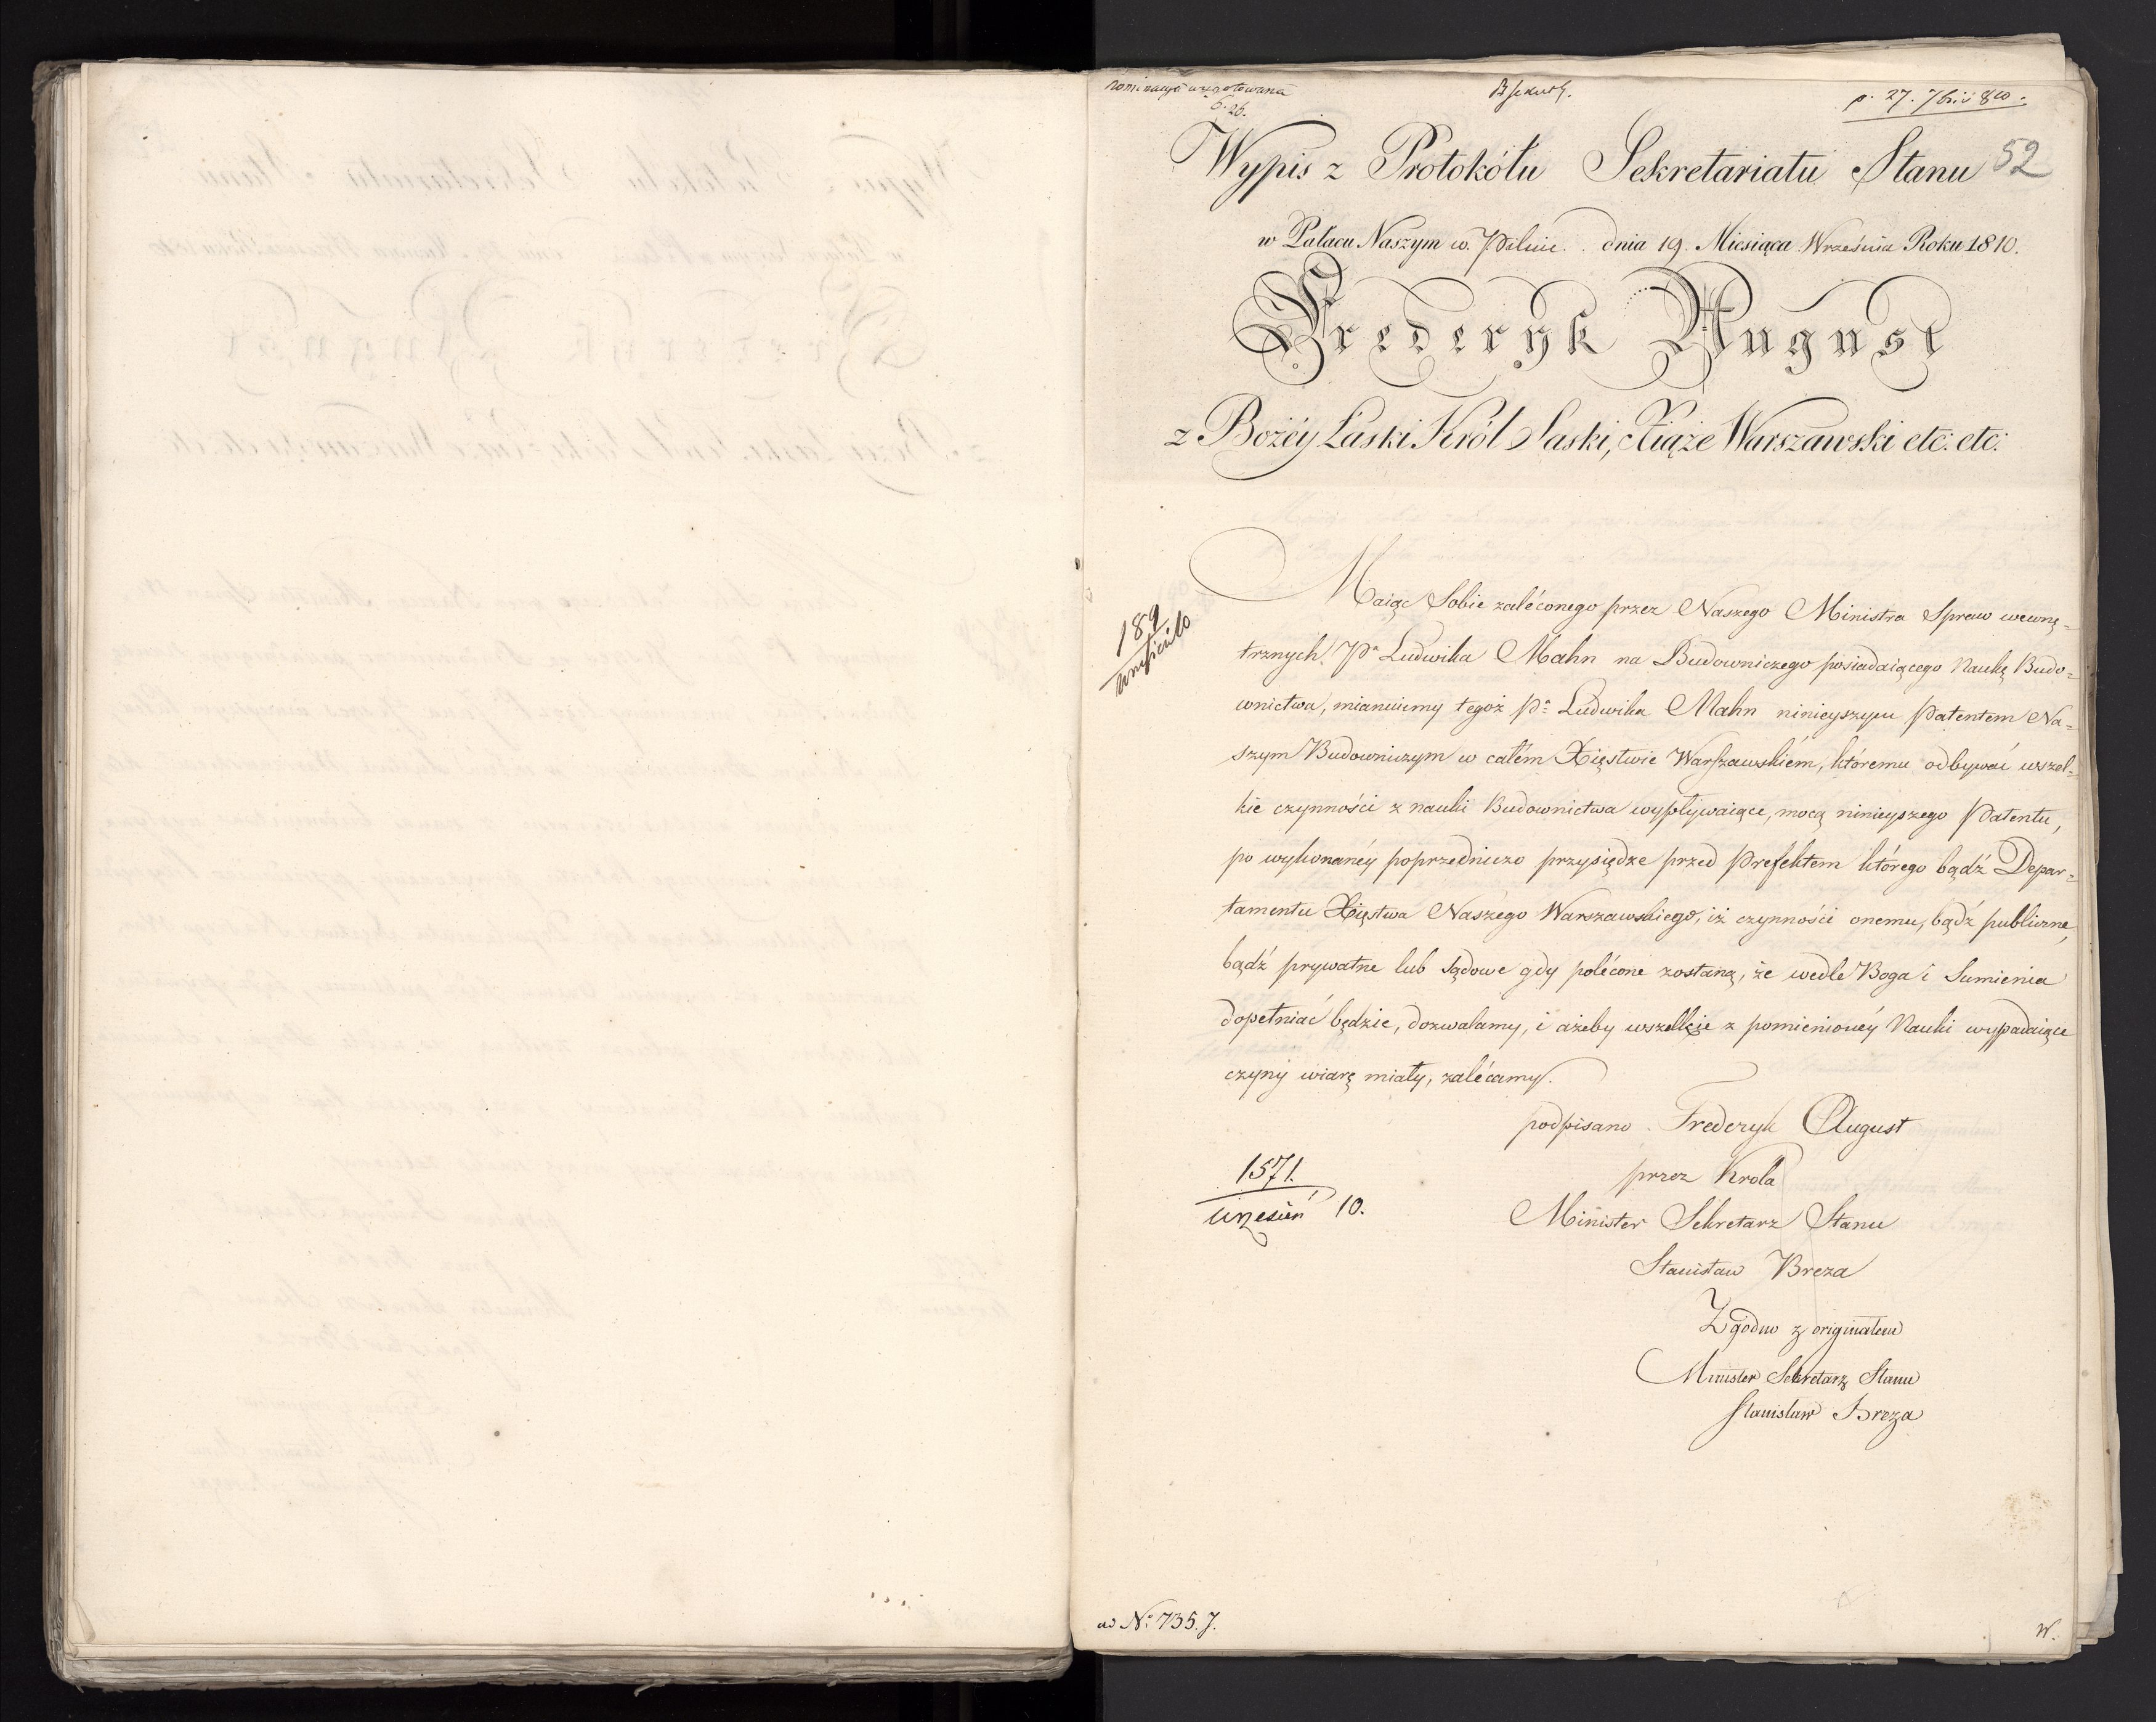 nominacya wygotowana
p. 27. 7br. 810.
Wypis z Protokółu Sekretariatu Stanu 52
w Pałacu Naszym w. Pilnic. dnia 19. Miesiąca Września Roku 1810.
Frederyk August
z Bożéy Łaski Król Saski, Xiąże Warszawski etc: etc:
Maiąc Sobie zaléconego przez Naszego Ministra Spraw wewnę=
trznych P. Ludwika Mahn na Budowniczego posiadaiącego Naukę Budo=
wnictwa, mianuiemy tegoż P. Ludwika Mahn ninieyszym Patentem Na=
szym Budowniczym w całém Xięstwie Warszawskiém, któremu odbywać wszel=
kie czynności z nauki Budownictwa wypływaiące, mocą ninieyszego Patentu,
po wykonanéy poprzedniczo przysiędze przed Prefektem którego bądź Depar=
tamentu Xięstwa Naszego Warszawskiego, iż czynności onemu, bądź publiczne,
bądź prywatne lub sądowe gdy polécone zostaną, że wedle Boga i Sumienia
dopełniać będzie, dozwalamy, i ażeby wszelkie z pomienionéy Nauki wypadaiące
czyny wiarę miały, zalécamy.
podpisano Frederyk August
przez Krola
Minister Sekretarz Stanu
Stanisław Breza
Zgodno z originałem
Minister Sekretarz Stanu
Stanisław Breza
189
1571.
wrzesień 10.
ad No 735. J.
W.